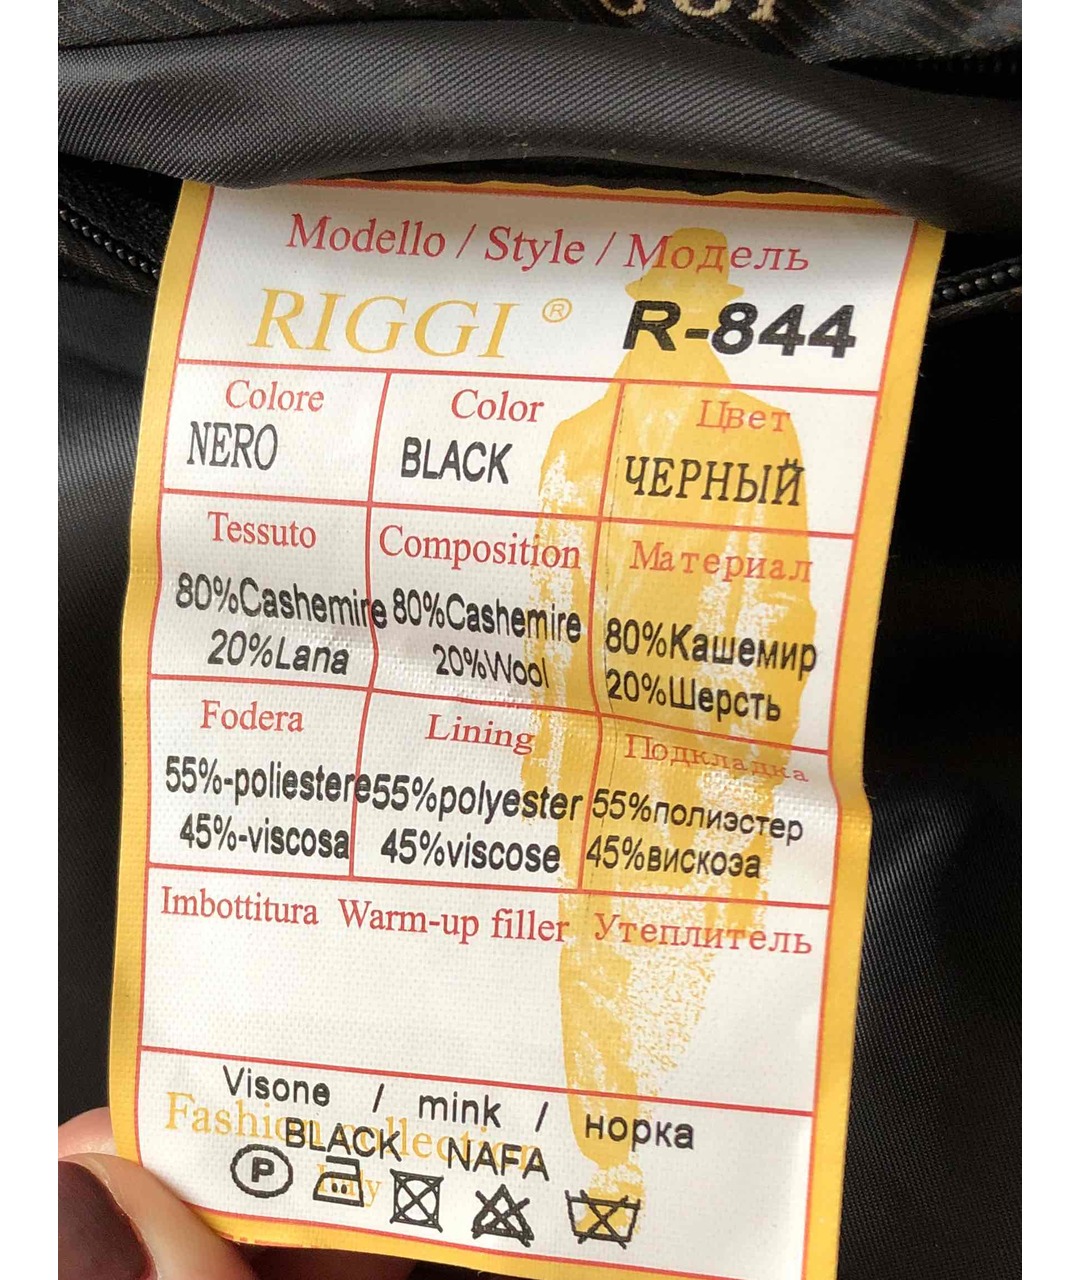 Modello / Style / Модель
RIGGI ® R-844
Colore Color Цвет
NERO BLACK ЧЕРНЫЙ
Tessuto Composition Материал
80%Cashemire 80%Cashemire 80%Кашемир
20%Lana 20%Wool 20%Шерсть
Fodera Lining Подкладка
55%-poliestere 55%polyester 55%полиэстер
45%-viscosa 45%viscose 45%вискоэа
Imbottitura Warm-up filler Утеплитель
Visone / mink / норка
Fashion collection
BLACK NAFA
Italy
P